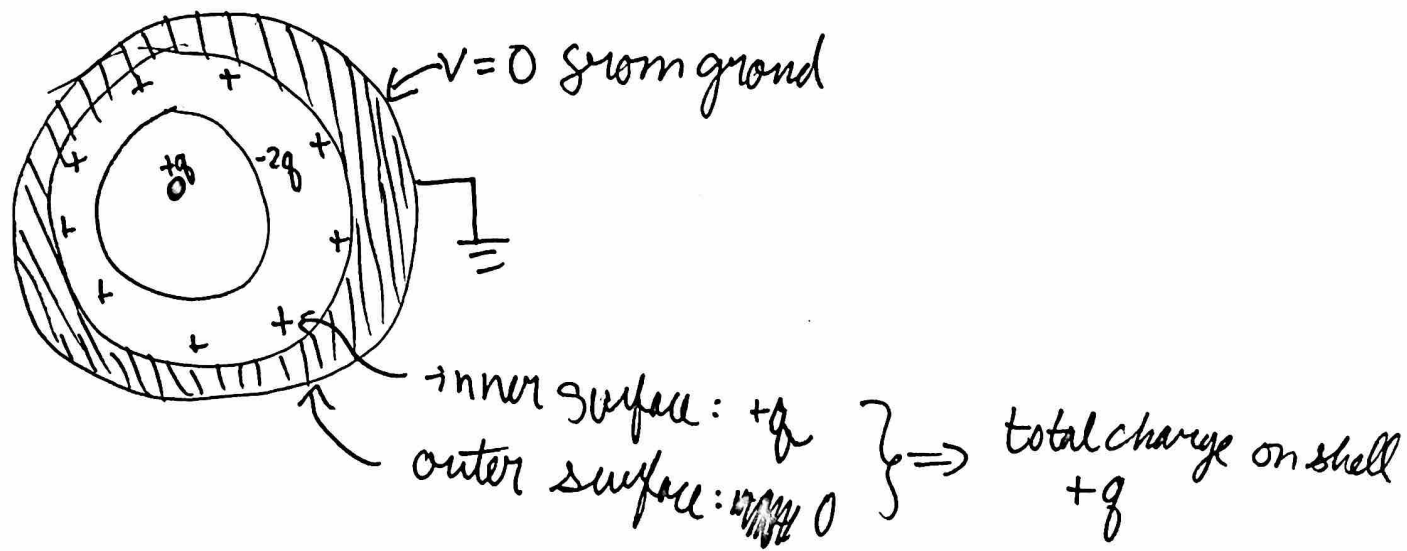 V=0 from grond
+q
-2q
+ + + + + + + + + +
inner surface: +q
outer surface: 0
⇒ total charge on shell
+q